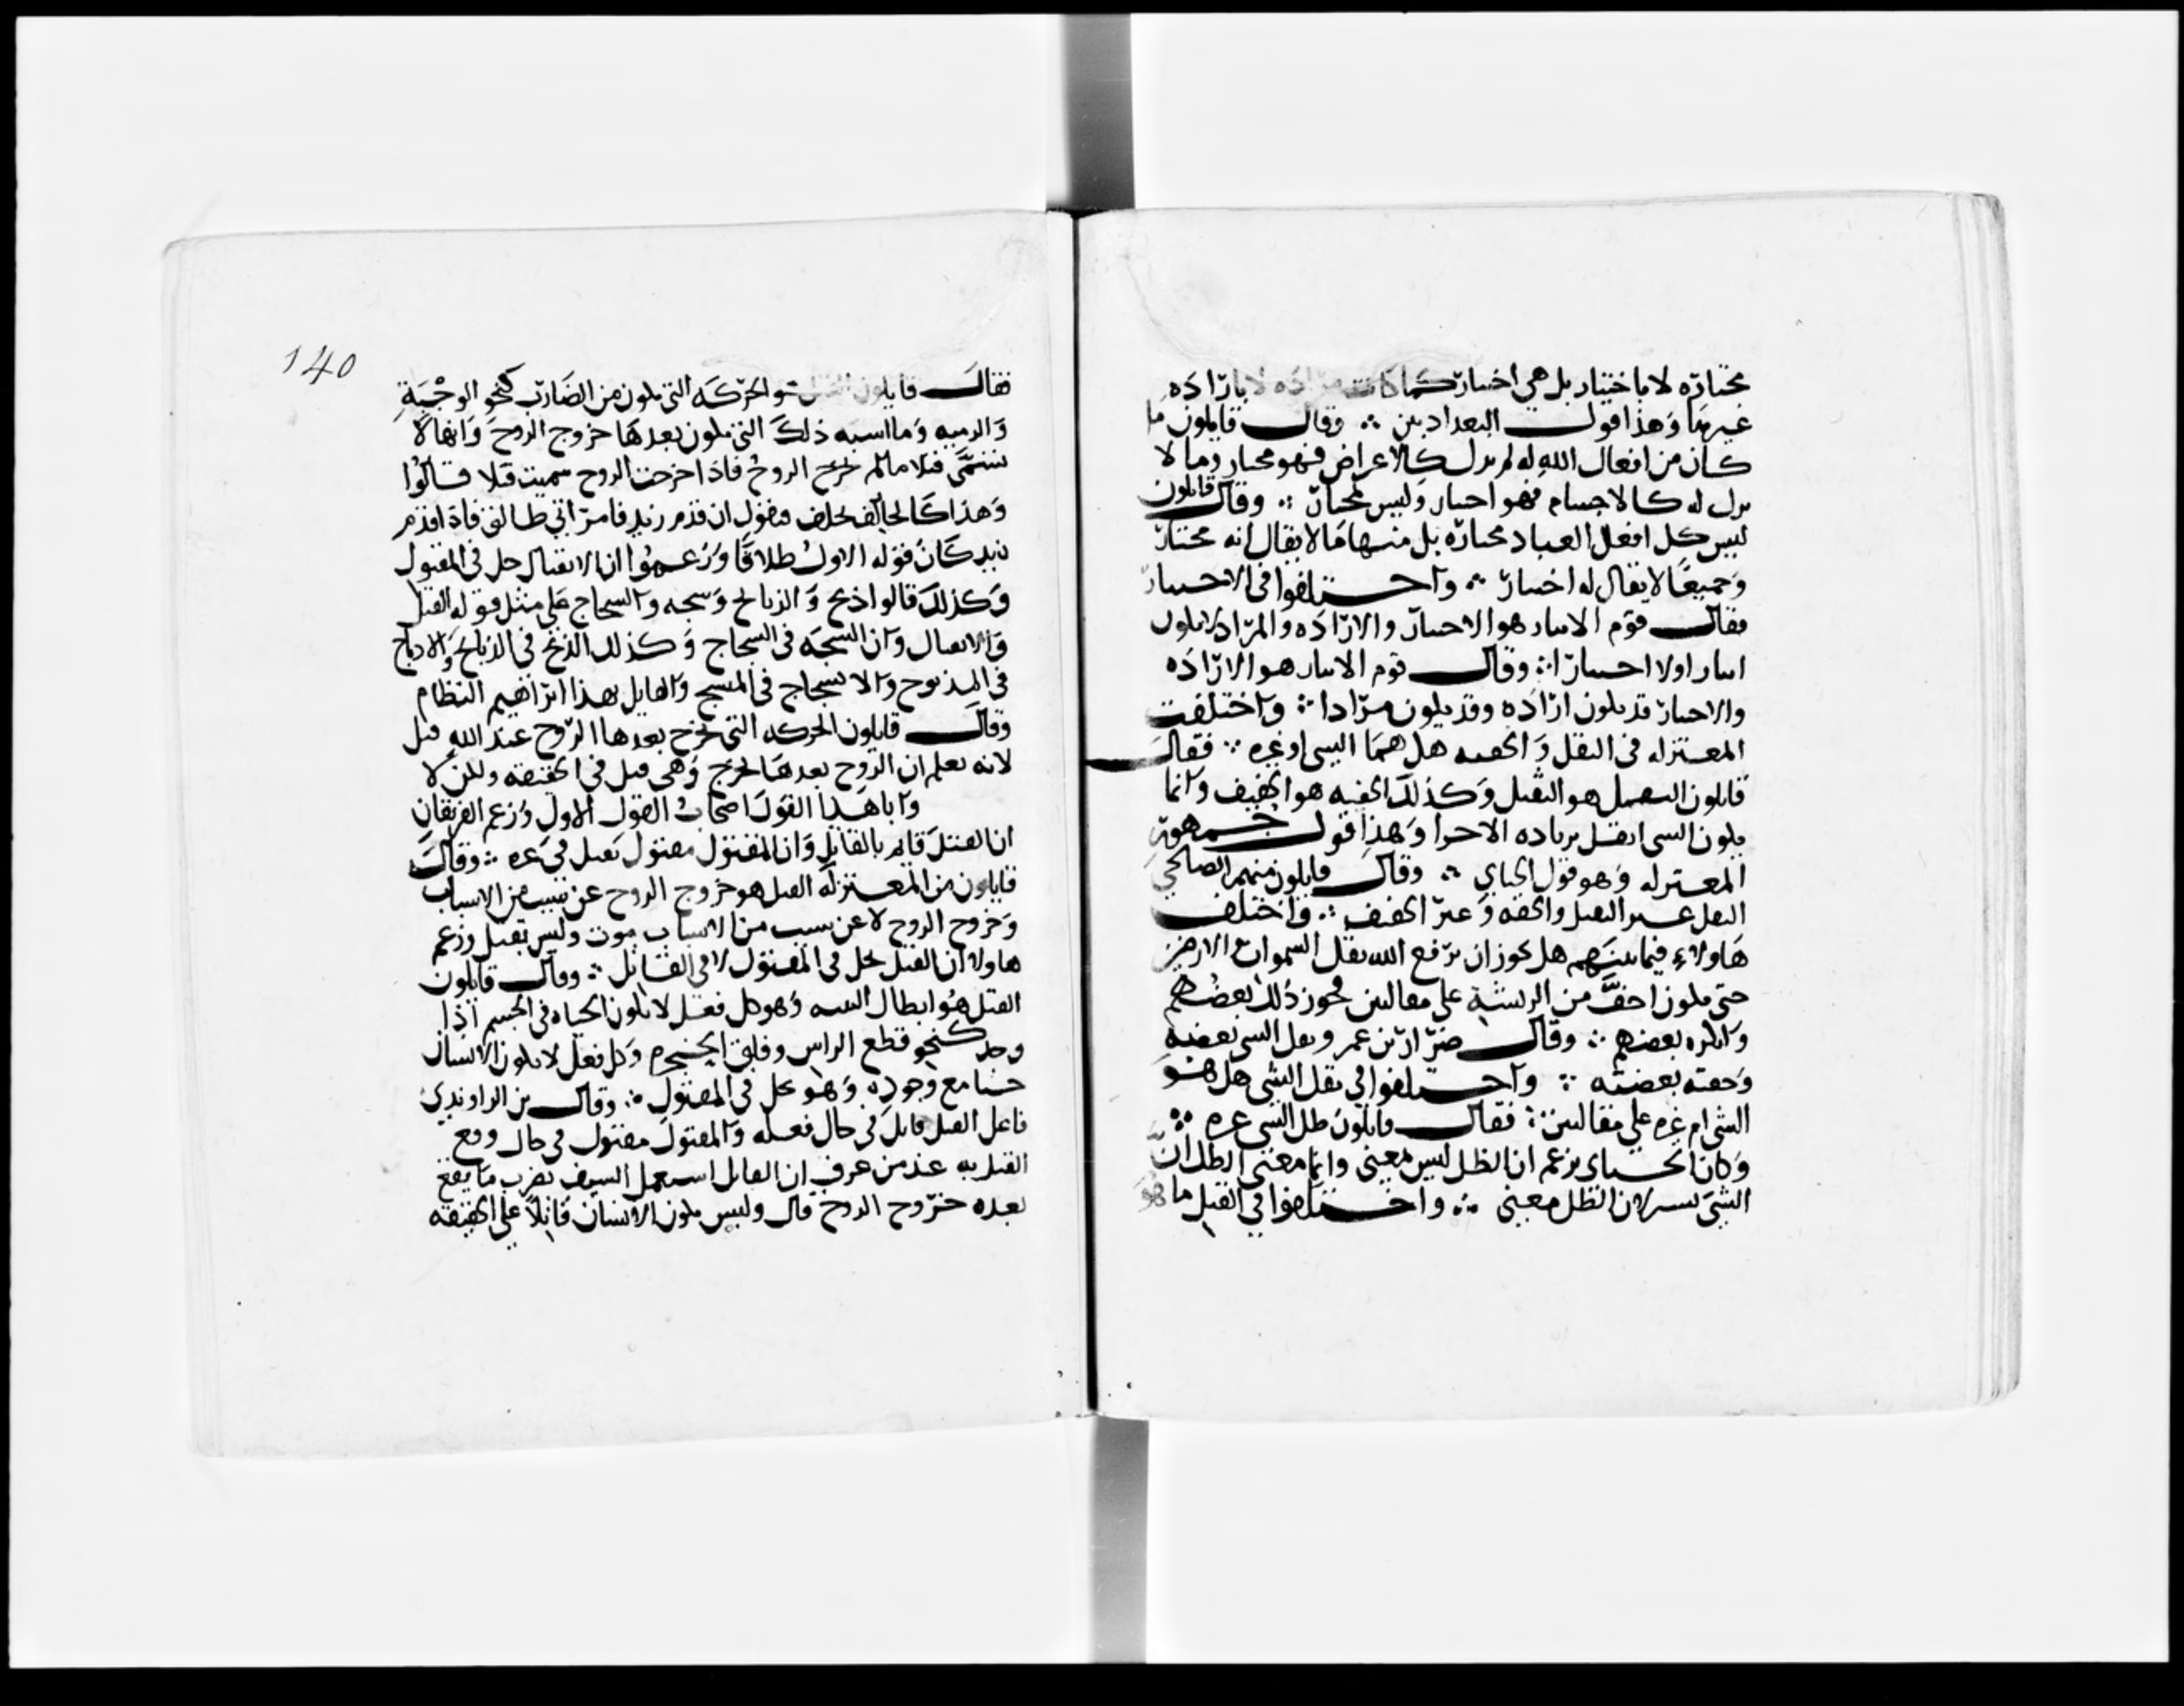 مختاره لا باختيار بل هي اختيار كما كانت مراده لا بارادة
غيرها وهذا قول البغداديين ∴ وقال قايلون ما
كان من افعال الله له ترك كالاعراض فهو مختار وما لا
ترك له كالاجسام فهو اختيار وليس بمختار ∴ وقال قايلون
ليس كل افعل العباد مختاره بل منها ما لا يقال انه مختار
وجميعا لا يقال له اختيار ∴ واختلفوا في الاختيار
فقال قوم الايثار هو الاختيار والارادة والمراد لا يكون
ايثارا ولا اختيارا ∴ وقال قوم الايثار هو الارادة
والاختيار قد يكون ارادة وقد يكون مرادا ∴ واختلفت
المعتزله في الثقل والخفه هل هما الشي او غيره ∴ فقال
قايلون الثقل هو الثقيل وكذلك الخفه هو الخفيف وانما
يكون الشي اثقل بزياده الاجزا وهذا قول جمهور
المعتزله وهو قول الجباي ∴ وقال قايلون منهم الصالحي
الثقل غير الثقيل والخفه غير الخفيف ∴ واختلف
هاولاء فيما بينهم هل يجوز ان يرفع الله ثقل السموات الارضين
حتى يكون اخف من الريشة على مقالتين فجوز ذلك بعضهم
وانكره بعضهم ∴ وقال ضرار بن عمر وثقل الشي بعضه
وخفته بعضه ∴ واختلفوا في ثقل الشي هل هو
الشي ام غيره على مقالتين ∴ فقال قايلون ظل الشي غيره ∴
وكان الجباي يزعم ان الظل ليس بمعنى وانما معنى الظل ان
الشي يستر لا ان الظل معنى ∴ واختلفوا في القتل ما هو
140
فقال قايلون القتل هو الحركه التي تكون من الضارب كنحو الوجبة
والرميه وما اشبه ذلك التي تكون بعدها خروج الروح وانها لا
تسمى قتلا ما لم تخرج الروح فاذا خرجت الروح سميت قتلا قالوا
وهذا كالحالف يحلف فيقول ان قدم زيد فامراتي طالق فاذا قدم
زيد كان قوله الاول طلاقا وزعموا ان الانقتال حل في المقتول
وكذلك قالوا ذبح والذباح وشجه والشجاج على مثل قوله القتل
والانقتال وان الشجه في الشجاج وكذلك الذبح في الذباح والانذباح
في المذبوح والانشجاج في المشج والقايل بهذا ابراهيم النظام
وقال قايلون الحركه التي تخرج بعدها الروح عند الله قتل
لانه يعلم ان الروح بعدها تخرج وهي قتل في الحقيقه ولكن لا
وابا هذا القول اصحاب القول الاول وزعم الفريقان
ان القتل قايم بالقاتل وان المقتول مقتول بقتل في غيره ∴ وقال
قايلون من المعتزله القتل هو خروج الروح عن سبب من الاسباب
وخروج الروح لا عن سبب من الاسباب موت وليس بقتل وزعم
هاولا ان القتل يحل في المقتول لا في القاتل ∴ وقال قايلون
القتل هو ابطال البنيه وهو كل فعل لا تكون الحياه في الجسم اذا
وجد كنحو قطع الراس وفلق الحنجره وكل فعل لا يكون الانسان
حيا مع وجوده وهو يحل في المقتول ∴ وقال بن الراوندي
فاعل القتل قاتل في حال فعله والمقتول مقتول في حال وقع
القتل به عند من عرف ان القاتل استعمل السيف بضرب ما يقع
بعده خروج الروح قال وليس يكون الانسان قاتلا على الحقيقه